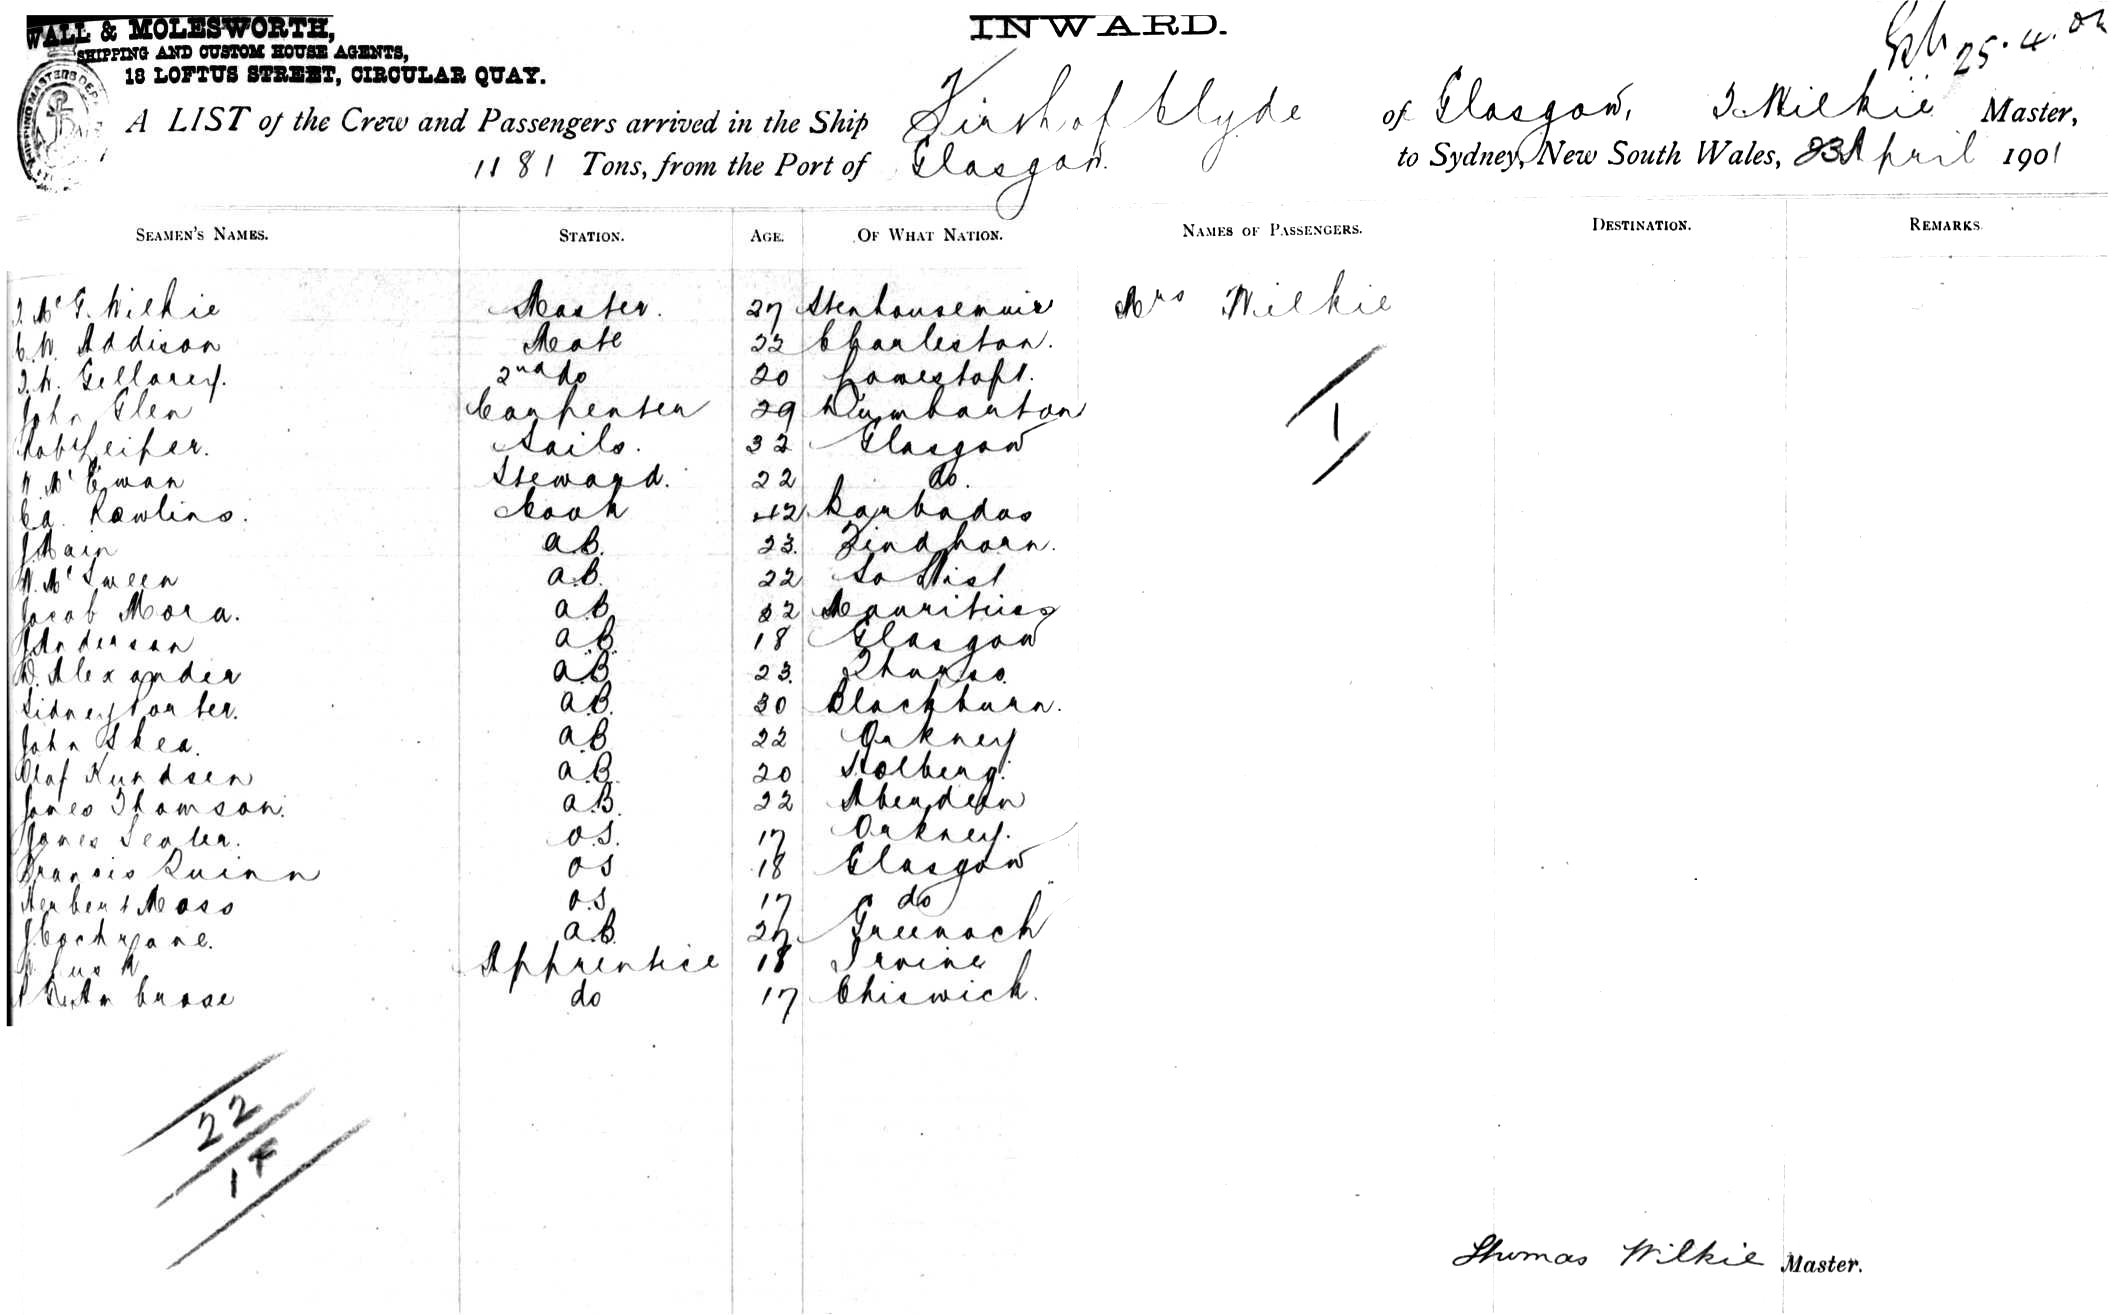 WALL & MOLESWORTH,
SHIPPING AND CUSTOM HOUSE AGENTS,
18 LOFTUS STREET, CIRCULAR QUAY.
INWARD.
25.4.01
A LIST of the Crew and Passengers arrived in the Ship Firth of Clyde of Glasgow, T Wilkie Master,
1181 Tons, from the Port of Glasgow. to Sydney, New South Wales, 23 April 1901
SEAMEN'S NAMES. STATION. AGE. OF WHAT NATION. NAMES OF PASSENGERS. DESTINATION. REMARKS
T. McG. Wilkie Master. 27 Stenhousemuir Mrs Wilkie
C. W. Addison Mate 22 Charleston.
T. W. Gellarey. 2nd do 20 Lowestoft.
John Glen Carpenter 29 Dumbarton
Robt Leiper. Sails. 32 Glasgow
W. McEwan Steward. 22 do.
Ca. Rawlins. Cook 42 Barbados
J Main A.B. 23. Findhorn.
N. McSween A.B. 22 So Uist
Jacob Mora. A.B. 32 Mauritius
J Anderson A.B. 18 Glasgow
D. Alexander A.B. 23. Thurso
Sidney Porter. A.B. 30 Blackburn.
John Skea. A.B 22 Orkney
Olaf Kundsen A.B. 20 Stolberg.
James Thomson. A.B. 22 Aberdeen
James Seater. O.S. 17 Orkney.
Francis Quinn O S 18 Glasgow
Herbert Moss O.S 17 do
J Cochrane. A.B. 27 Greenock
Lusk Apprentice 18 Irvine
Ambrose do 17 Chiswick.
1
22
1
Thomas Wilkie Master.